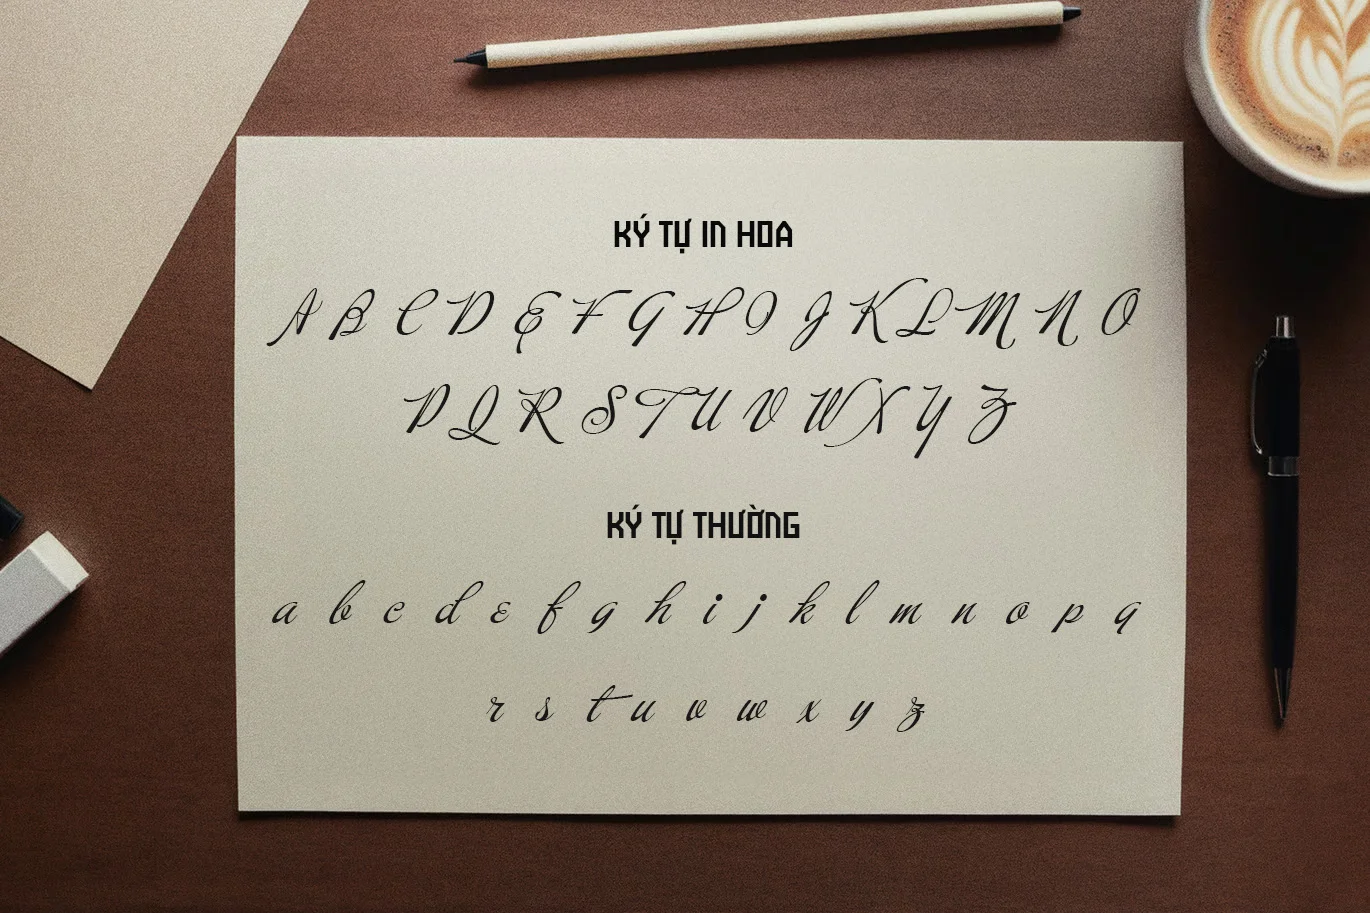 KÝ TỰ IN HOA
A B C D E F G H I J K L M N O
P Q R S T U V W X Y Z
KÝ TỰ THƯỜNG
a b c d e f g h i j k l m n o p q
r s t u v w x y z